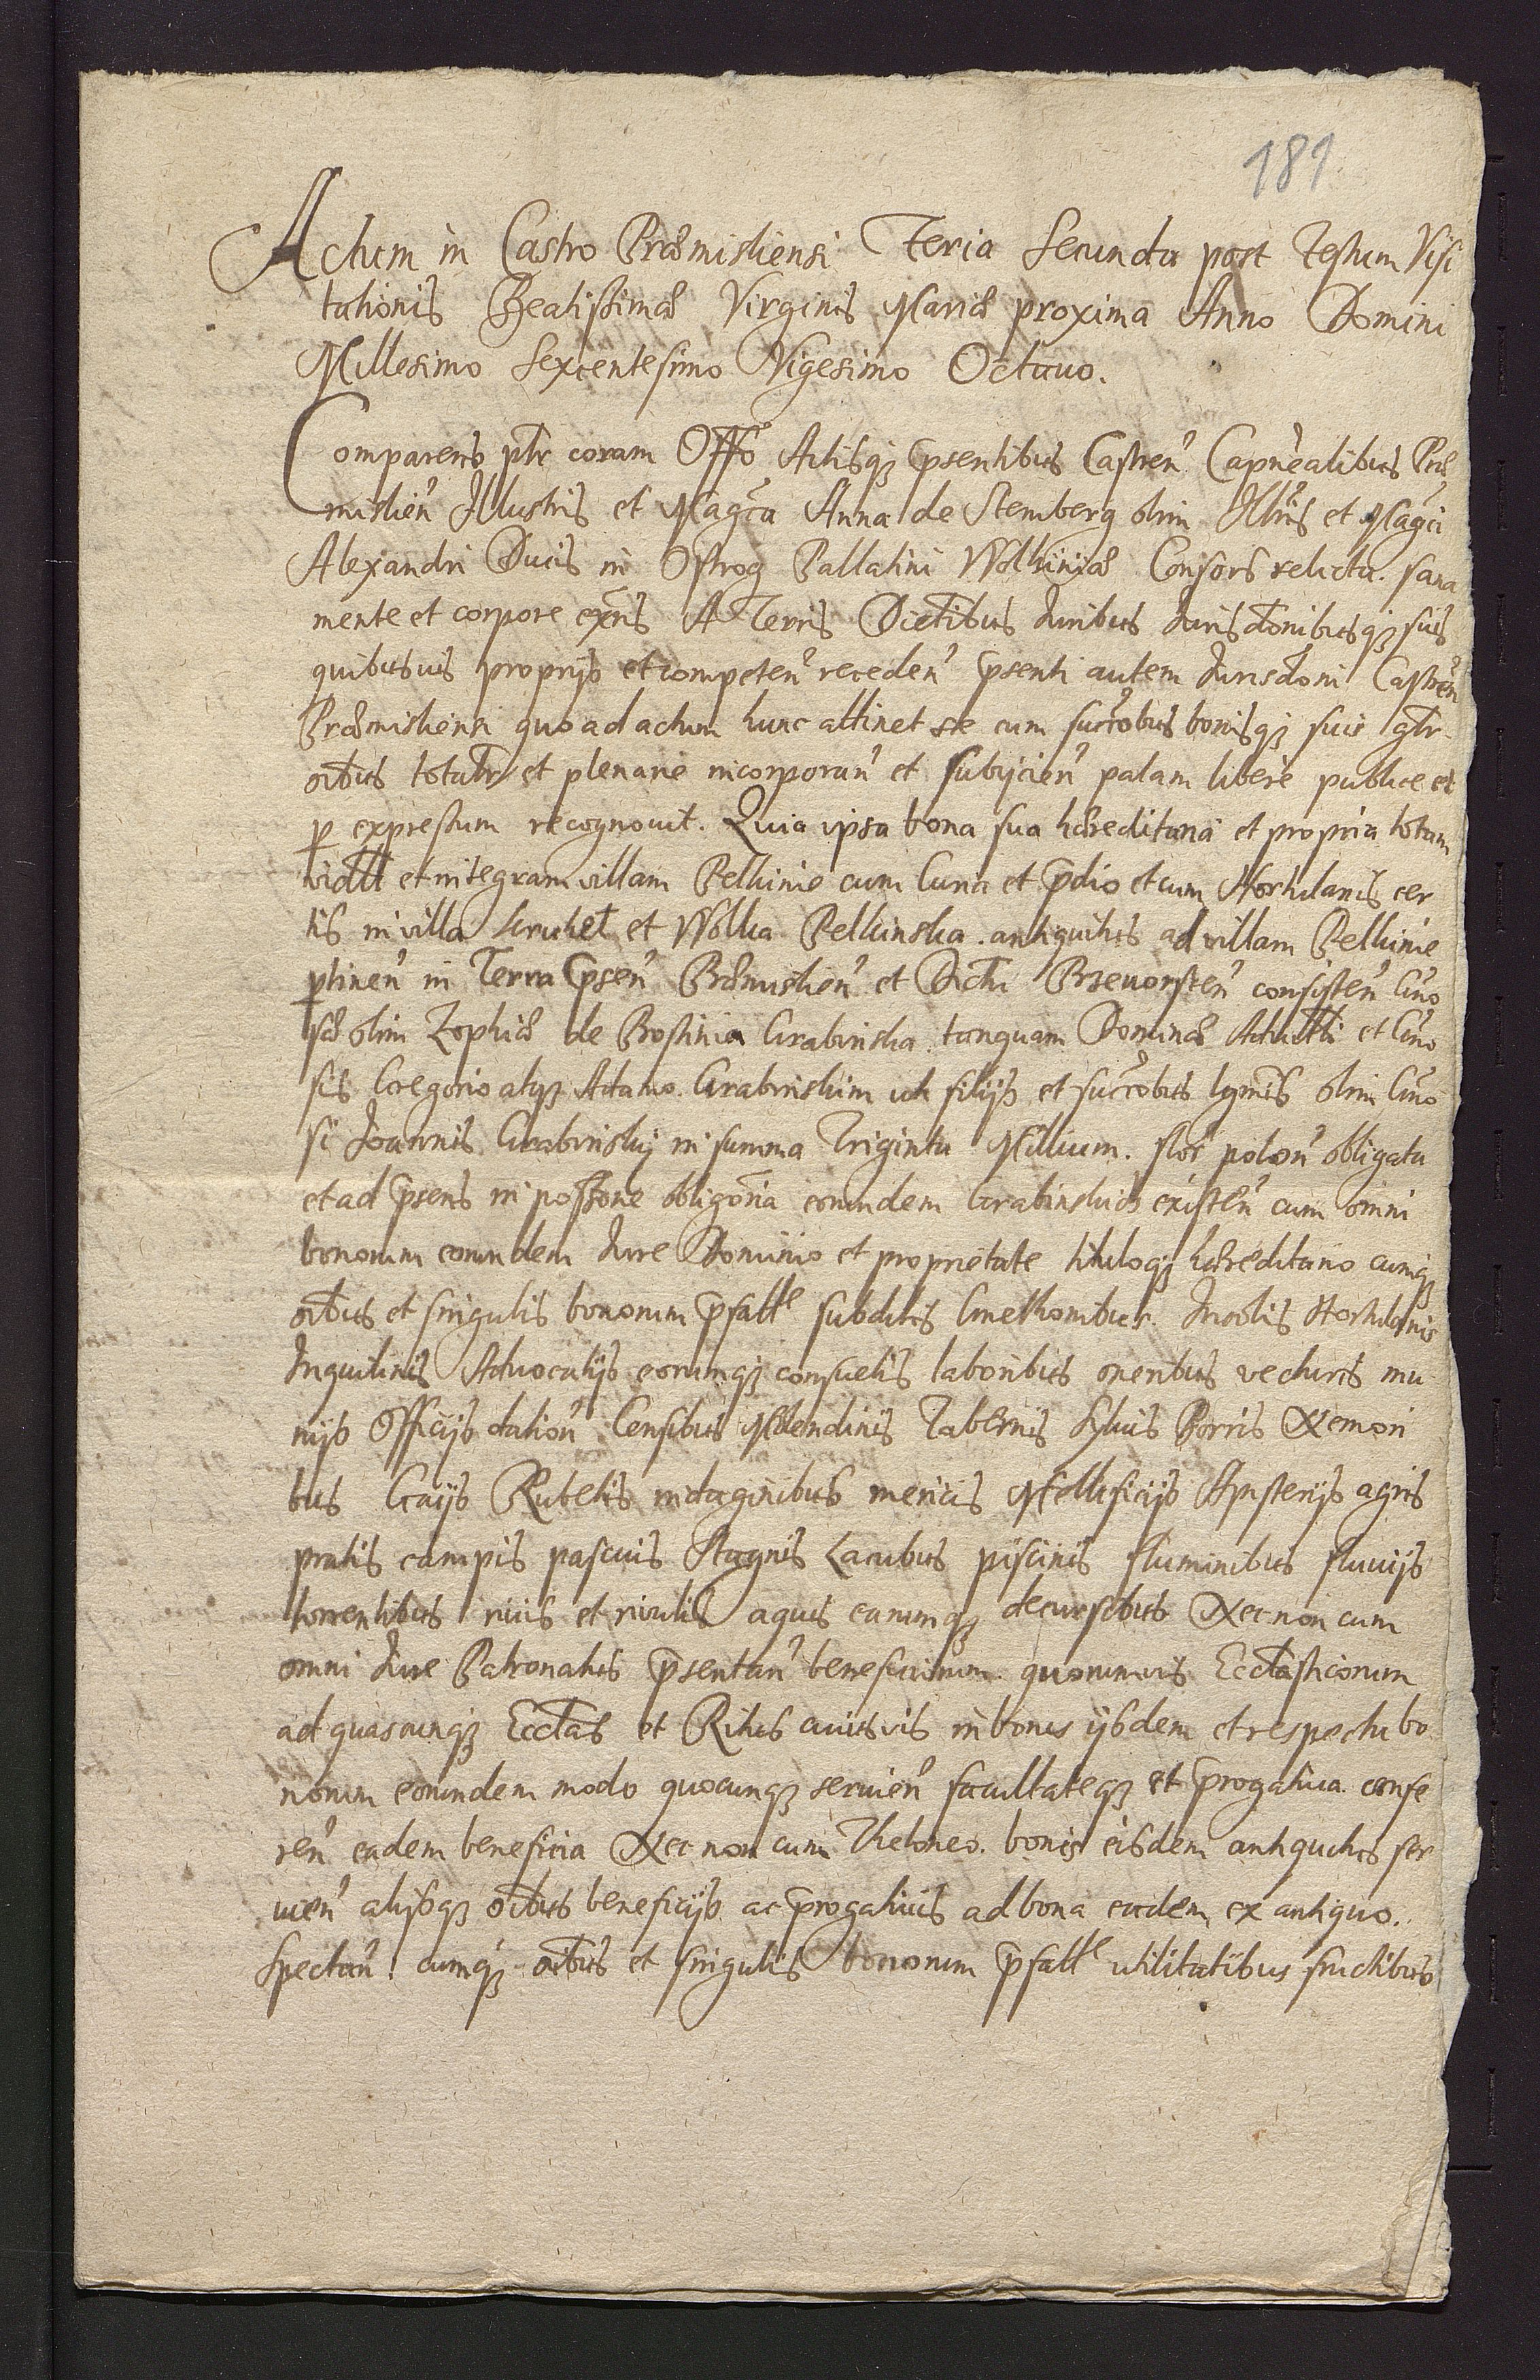 181
Actum in Castro Præmisliensi Feria Secunda post Festum Visi
tationis Beatissimæ Virginis Mariæ proxima Anno Domini
Millesimo Sexcentesimo Vigesimo Octauo.
Comparens ptr coram Offo Actisq; psentibus Castren Capnealibus Præ
mislien Illustris et Magca Anna de Stemberg olim Illris et Magci
Alexandri Ducis in Ostrog Pallatini Wolhiniæ Consors relicta. sana
mente et corpore exñs A Terris Dictibus Iuribus Iurisdonibusq; suis
quibusuis proprijs et competen receden psenti autem Iurisdoni Castren
Præmisliensi quo ad actum hunc attinet se cum succrobus bonisq; suis gtr
oibus totatr et plenarie incorporan et subijcien palam libere publice et
p expressum recognouit. Quia ipsa bona sua hæreditaria et propria totam
vidtt et integram villam Pelkinie cum Curia et pdio et cum Hortulanis cer
tis in villa et Wolka Pelkinska. antiquitus ad villam Pelkinie
ptinen in Terra psen Præmislien et Dictu Przeuorsten consisten Gno
sæ olim Zophiæ de Grabinska tanquam Dominæ Aduittli et Gno
sis Gregorio atq; Adamo. Grabinskim uti filijs et succrobus lgmis olim Gno
si Ioannis Grabinskij in summa Triginta Millium. flor polon obligata
et ad psens in possone obligoria eorundem Grabinskich existen cum omni
bonorum eorundem Iure Dominio et proprietate tituloq; hæreditario cumq;
oibus et singulis bonorum psatt subditis Cmethonibus. Incolis Hortulanis
Inquilinis Aduocatijs eorumq; consuetis laboribus oneribus vecturis mu
nijs Officijs dation Censibus Molendinis Tabernis Syluis Borris Nemori
bus Gaijs Rubetis indaginibus mericis Mellificijs agris
pratis campis pascuis Stagnis Lacubus piscinis fluminibus fluuijs
torrentibus riuis et riuulis aquis earumq; decursibus Nec non cum
omni Iure Patronatus psentan beneficiorum. quorumuis Ecclasticorum
ad quascunq; Ecclas et Ritus cuiusuis in bonis ijsdem et respectu bo
norum eorundem modo quocunq; seruien facultateq; et progatiua. confe
ren eadem beneficia Nec non cum Theloneo. bonis eisdem antiquitus ser
uien alijsq; oibus beneficijs. ac progatiuis ad bona eadem ex antiquo.
Spectan. cumq; oibus et singulis bonorum psatt utilitatibus fructibus